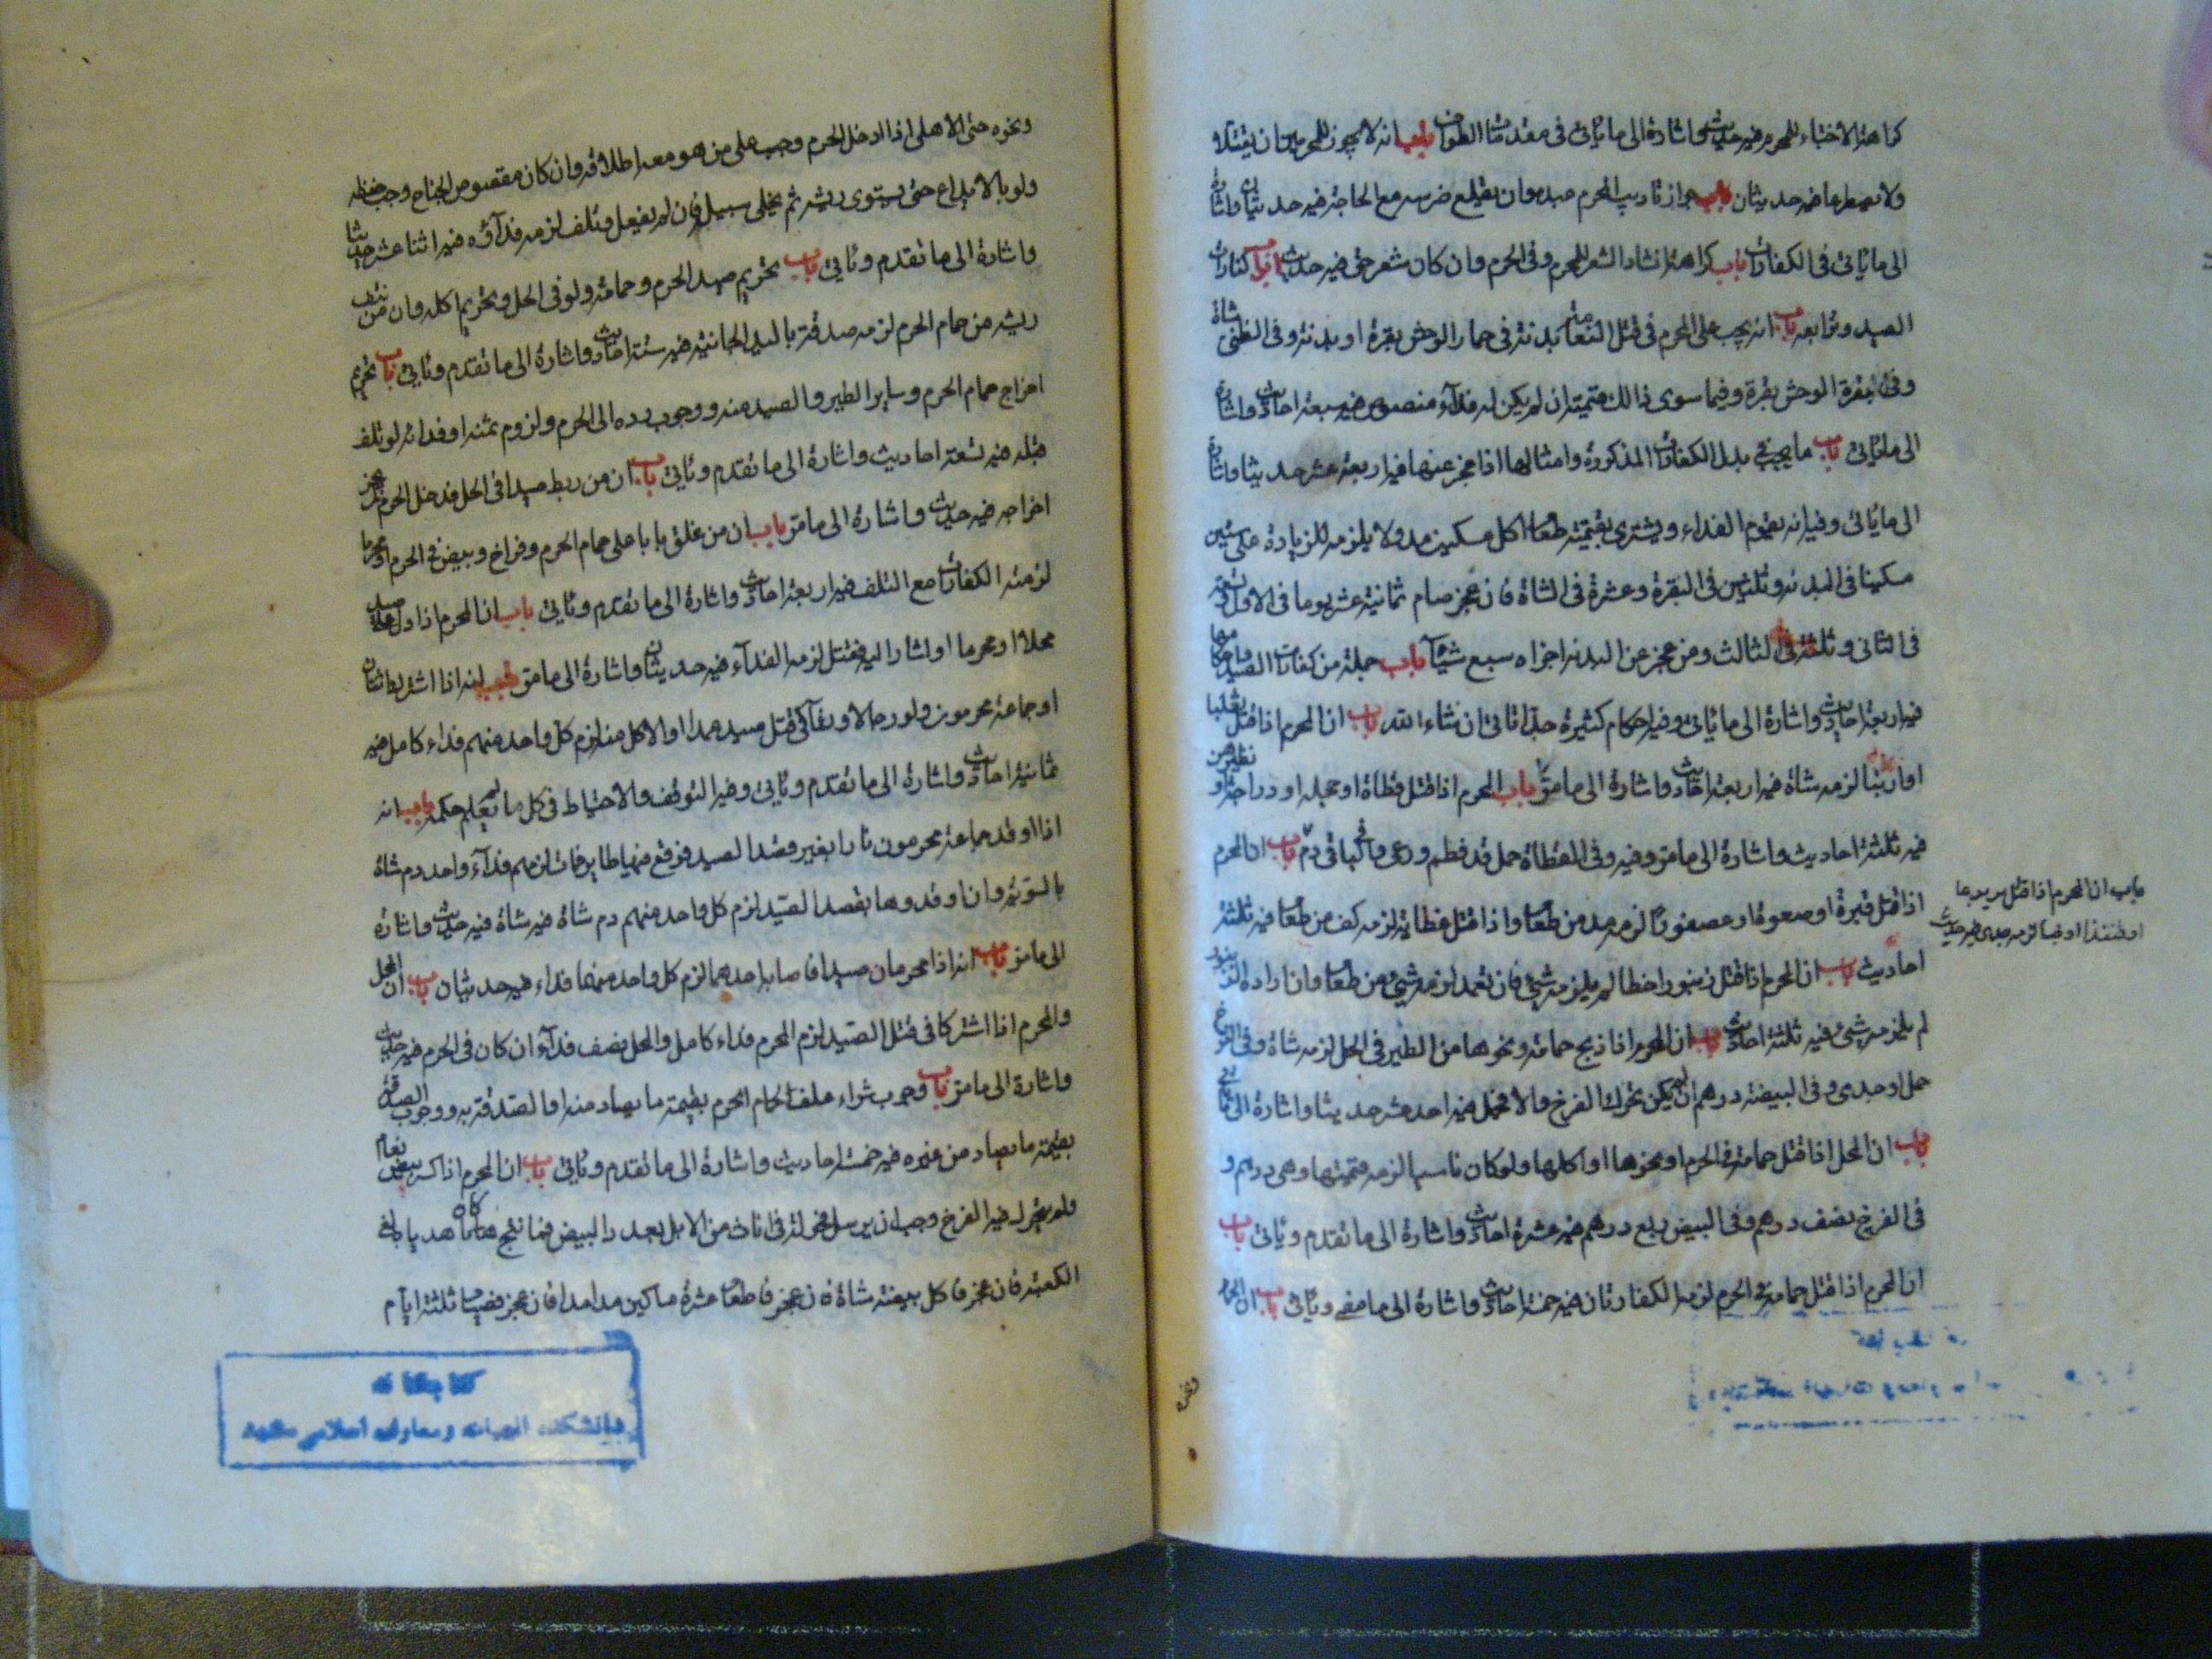 كراهة الاحتباء للمحرم فيه حديث واشارة الى ما يأتى فى مقدمات الطواف باب انه لا يجوز للمحرمين ان يقتتلا
ولا يصطرعا فيه حديثان باب جواز تاديب المحرم عبده وان يقلع ضرسه مع الحاجة فيه حديثان واشارة
الى ما يأتى فى الكفارات باب كراهة انشاد الشعر للمحرم وفى الحرم وان كان شعر حق فيه حديث ابواب كفارات
الصيد وتوابعه باب انه يجب على المحرم فى قتل النعامة بدنة فى حمار الوحش بقرة او بدنة وفى الظبى شاة
وفى بقرة الوحش بقرة وفيما سوى ذالك قيمته ان لم يكن له فداء منصوص فيه سبعة احاديث واشارة
الى ما يأتى باب ما يجب فى بدل الكفارات المذكورة وامثالها اذا عجز عنها فيه اربعة عشر حديثا واشارة
الى ما يأتى وفيه انه يقوم الفداء ويشترى بقيمته طعاما لكل مسكين مد ولا يلزمه الزيادة على ستين
مسكينا فى البدنة وثلثين فى البقرة وعشرة فى الشاة فان عجز صام ثمانية عشر يوما فى الاول وتسعة
فى الثانى وثلثة فى الثالث ومن عجز عن البدنة اجزاه سبع شياه باب جملة من كفارات الصيد واحكامها
فيه اربعة احاديث واشارة الى ما يأتى وفيه احكام كثيرة جدا تاتى ان شاء الله باب ان المحرم اذا قتل ثعلبا
او ارنبا لزمه شاة فيه اربعة احاديث واشارة الى ما مر باب المحرم اذا قتل قطاة او حجلة او دراجة او نظيرهن
فيه ثلثة احاديث واشارة الى ما مر وفيه وفى القطاة حمل قد فطم ورعى وفى الباقى دم باب ان المحرم
اذا قتل قبرة او صعوة او عصفورا لزمه مد من طعام واذا قتل عظاية لزمه كف من طعام فيه ثلثة
باب ان المحرم اذا قتل يربوعا
او قنفذا او ضبا لزمه جدى فيه حديث
احاديث باب ان المحرم اذا قتل زنبورا خطا لم يلزمه شئ فان تعمد لزمه شئ من طعام وان اراده الزنبور
لم يلزمه شئ فيه ثلثة احاديث باب ان المحرم اذا ذبح حمامة ونحوها من الطير فى الحل لزمه شاة وفى الفرخ
حمل او جدى وفى البيضة درهم ان لم يكن تحرك الفرخ والا فحمل فيه احد عشر حديثا واشارة الى ما يأتى
باب ان المحل اذا قتل حمامة فى الحرم او نحوها او اكلها ولو كان ناسيا لزمه قيمتها وهى درهم و
فى الفرخ نصف درهم وفى البيض ربع درهم فيه عشرة احاديث واشارة الى ما تقدم ويأتى باب
ان المحرم اذا قتل حمامة فى الحرم لزمه الكفارتان فيه خمسة احاديث واشارة الى ما مضى ويأتى باب ان الحمام
ونحوه
ونحوه حتى الاهلى اذا ادخل الحرم وجب على من هو معه اطلاقه وان كان مقصوص الجناح وجب حفظه
ولو بالايداع حتى يستوى ريشه ثم يخلى سبيله فان لم يفعل وتلف لزمه فداؤه فيه اثنا عشر حديثا
واشارة الى ما تقدم ويأتى باب تحريم صيد الحرم وحمامه ولو فى الحل وتحريم اكله وان من نتف
ريشه من حمام الحرم لزمه صدقة باليد الجانية فيه ستة احاديث واشارة الى ما تقدم ويأتى باب تحريم
اخراج حمام الحرم وساير الطير والصيد منه ووجوب رده الى الحرم ولزوم ثمنه او فدائه لو تلف
قبله فيه تسعة احاديث واشارة الى ما تقدم ويأتى باب ان من ربط صيدا فى الحل فدخل الحرم لم يجز
اخراجه فيه حديث واشارة الى ما مر باب ان من غلق بابا على حمام الحرم وفراخ وبيض فى الحرم او محرما
لزمته الكفارات مع التلف فيه اربعة احاديث واشارة الى ما تقدم ويأتى باب ان المحرم اذا دل على صيد
محلا او محرما او اشار اليه فقتل لزمه الفداء فيه حديثان واشارة الى ما مر باب انه اذا اشترك اثنان
او جماعة محرمون ولو رجالا ونساء فى قتل صيد عمدا او الاكل منه لزم كل واحد منهم فداء كامل فيه
ثمانية احاديث واشارة الى ما تقدم ويأتى وفيه التوقف والاحتياط فى كل ما لم يعلم حكمه باب انه
اذا اوقد جماعة محرمون نارا بغير قصد الصيد فوقع فيها طاير فمات لزمهم فداء واحد دم شاة
بالسوية وان اوقدوها بقصد الصيد لزم كل واحد منهم دم شاة فيه شاة فيه حديث واشارة
الى ما مر باب انه اذا محرمان صيدا فاصابه احدهما لزم كل واحد منهما فداء فيه حديثان باب ان المحل
والمحرم اذا اشتركا فى قتل الصيد لزم المحرم فداء كامل والمحل نصف فداء ان كان فى الحرم فيه حديث
واشارة الى ما مر باب وجوب شراء علف لحمام الحرم بقيمة ما يصاد منه او الصدقة به ووجوب الصدقة
بقيمة ما يصاد من غيره فيه خمسة احاديث واشارة الى ما تقدم ويأتى باب ان المحرم اذا كسر بيض نعام
ولم يتحرك فيه الفرخ وجب ان يرسل فحولة فى اناث من الابل بعدد البيض فما نتج كان هديا بالغ
الكعبة فان عجز فاكل بيضة شاة فان عجز فاطعام عشرة مساكين مدا مدا فان عجز فصيام ثلثة ايام
كتابخانه
دانشكده الهيات و معارف اسلامى مشهد